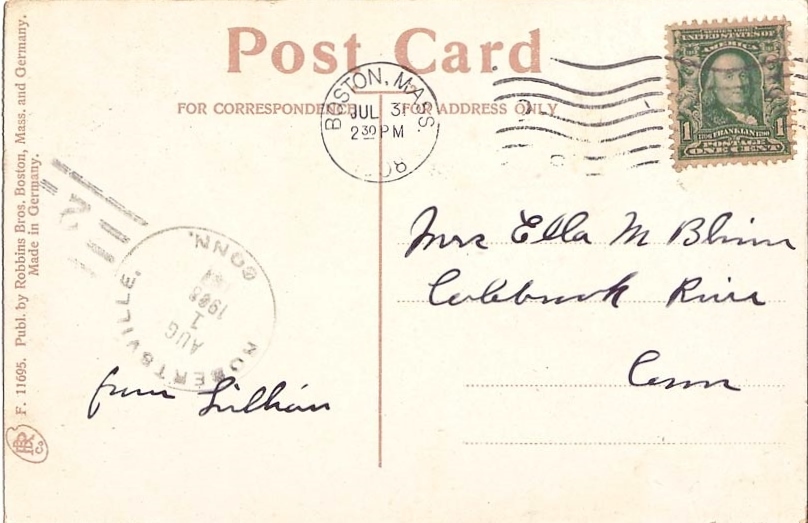 Post Card
FOR CORRESPONDENCE
FOR ADDRESS ONLY
BOSTON, MASS.
JUL 31
2 30 PM
SERIES 1902
UNITED STATES OF
AMERICA
1 FRANKLIN 1
POSTAGE
ONE CENT
Mrs Ella M
Colebrook River
Conn
ROBERTSVILLE, CONN.
AUG
1
1908
from Lillian
F. 11695. Publ. by Robbins Bros. Boston, Mass. and Germany.
Made in Germany.